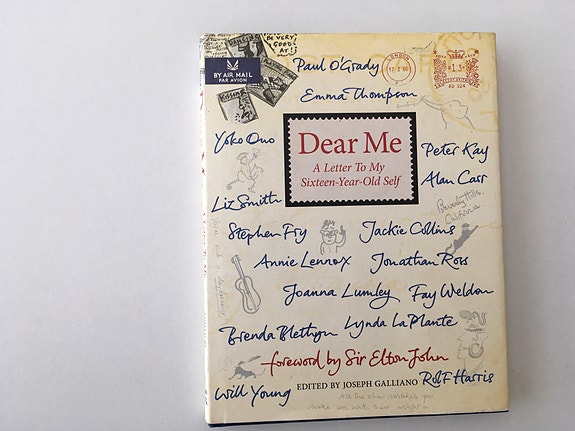 BE VERY
GOOD
AT!!
BY AIR MAIL
PAR AVION
LONDON
Paul O'Grady
Emma Thompson
Yoko Ono
Dear Me
A Letter To My
Sixteen-Year-Old Self
Peter Kay
Alan Carr
Liz Smith
Beverly Hills,
California
Stephen Fry
Jackie Collins
Annie Lennox
Jonathan Ross
Joanna Lumley
Fay Weldon
Brenda Blethyn
Lynda La Plante
foreword by Sir Elton John
EDITED BY JOSEPH GALLIANO
Will Young
Rolf Harris
All the other mistakes you